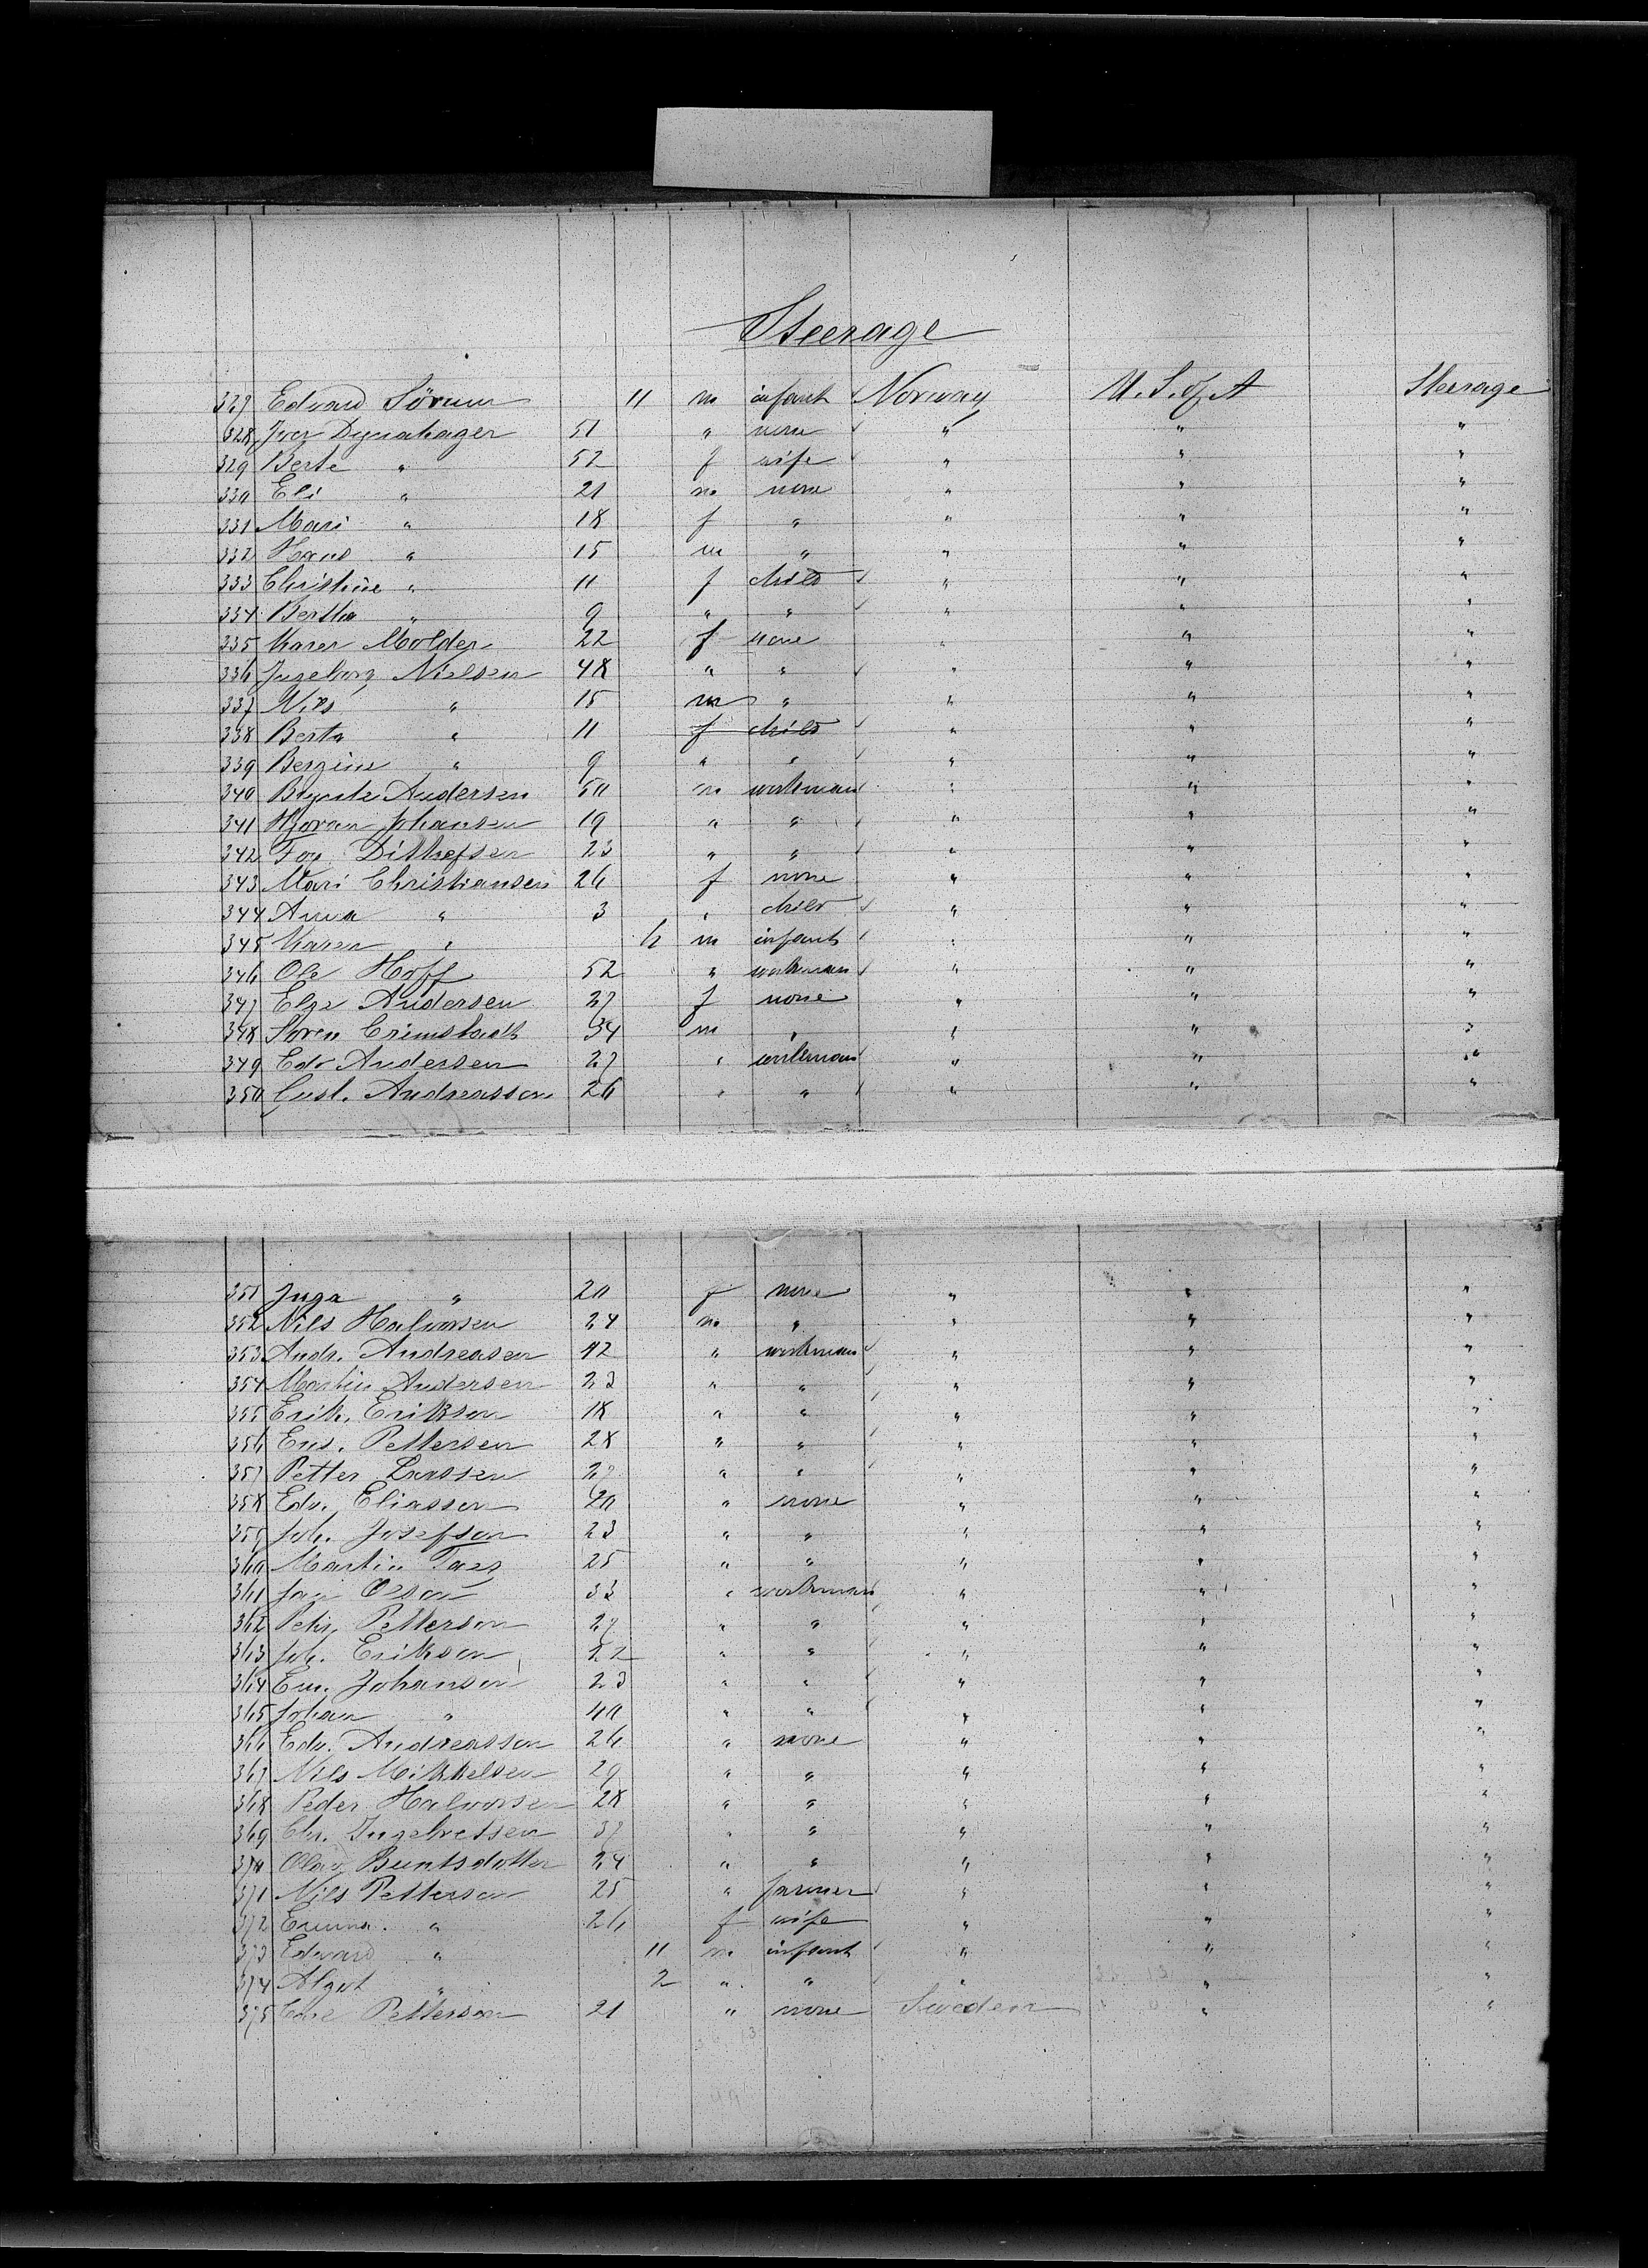 Steerage
327 Edvard Sörum 11 m infant Norway U. S. of A Steerage
328 Iver Dynnahager 51 " none " " "
329 Berte " 52 f wife " " "
330 Eli " 21 m none " " "
331 Mari " 18 f " " " "
332 Hans " 15 m " " " "
333 Christine " 11 f child " " "
334 Bertha " 9 " " " " "
335 Karen Molder 22 f none " " "
336 Ingeborg Nielsen 48 " " " " "
337 Nils " 15 m " " " "
338 Berta " 11 f child " " "
339 Bergine " 9 " " " " "
340 Andersen 50 m workman " " "
341 Johansen 19 " " " " "
342 Ditlefsen 23 " " " " "
343 Mari Christiansen 26 f none " " "
344 Anna " 3 " child " " "
345 Karen " 6 m infant " " "
346 Ole Hoff 52 " workman " " "
347 Elge Andersen 27 f none " " "
348 Soren Crimstadt 34 m " " " "
349 Edv Andersen 27 " workman " " "
350 Gust. Andreasson 26 " " " " "
351 Inga " 20 f none " " "
352 Nils Halvorsen 24 m " " " "
353 Andr. Andreasen 42 " workman " " "
354 Martin Andersen 23 " " " " "
355 Erik. Erikson 18 " " " " "
356 Pettersen 28 " " " " "
357 Petter Larssen 27 " " " " "
358 Edv. Eliasson 20 " none " " "
359 Joh. Josefson 23 " " " " "
360 Martin 25 " " " " "
361 Jan Olson 33 " workman " " "
362 Petterson 27 " " " " "
363 Joh. Erikson 22 " " " " "
364 Em. Johanson 23 " " " " "
365 Johan " 40 " " " " "
366 Edv. Andreasson 26 " none " " "
367 Nils Mikkelsen 29 " " " " "
368 Peder Halvorsen 28 " " " " "
369 Chr. Ingebretsen 37 " " " " "
370 Olav Buntsdotter 24 " " " " "
371 Nils Petterson 25 " farmer " " "
372 Emma " 26 f wife " " "
373 Edvard " 11 m infant " " "
374 Algot " 2 " " " " "
375 Petterson 21 " none Sweden " "